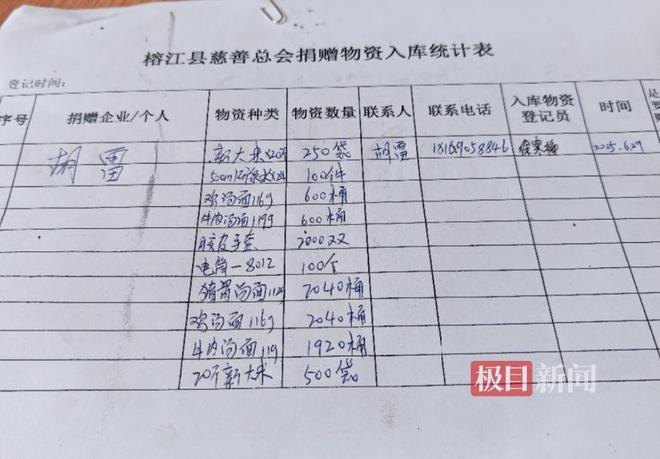 榕江县慈善总会捐赠物资入库统计表
登记时间:
序号 捐赠企业/个人 物资种类 物资数量 联系人 联系电话 入库物资登记员 时间 是
胡雷 新大米 250袋 胡雷 18169058846 2025.6.29
500ml 100件
鸡汤面116g 600桶
牛肉汤面119g 600桶
胶皮手套 2000双
电筒-8012 100个
猪骨汤面 2040桶
鸡汤面116g 2040桶
牛肉汤面119 1920桶
20斤新大米 500袋
极目新闻